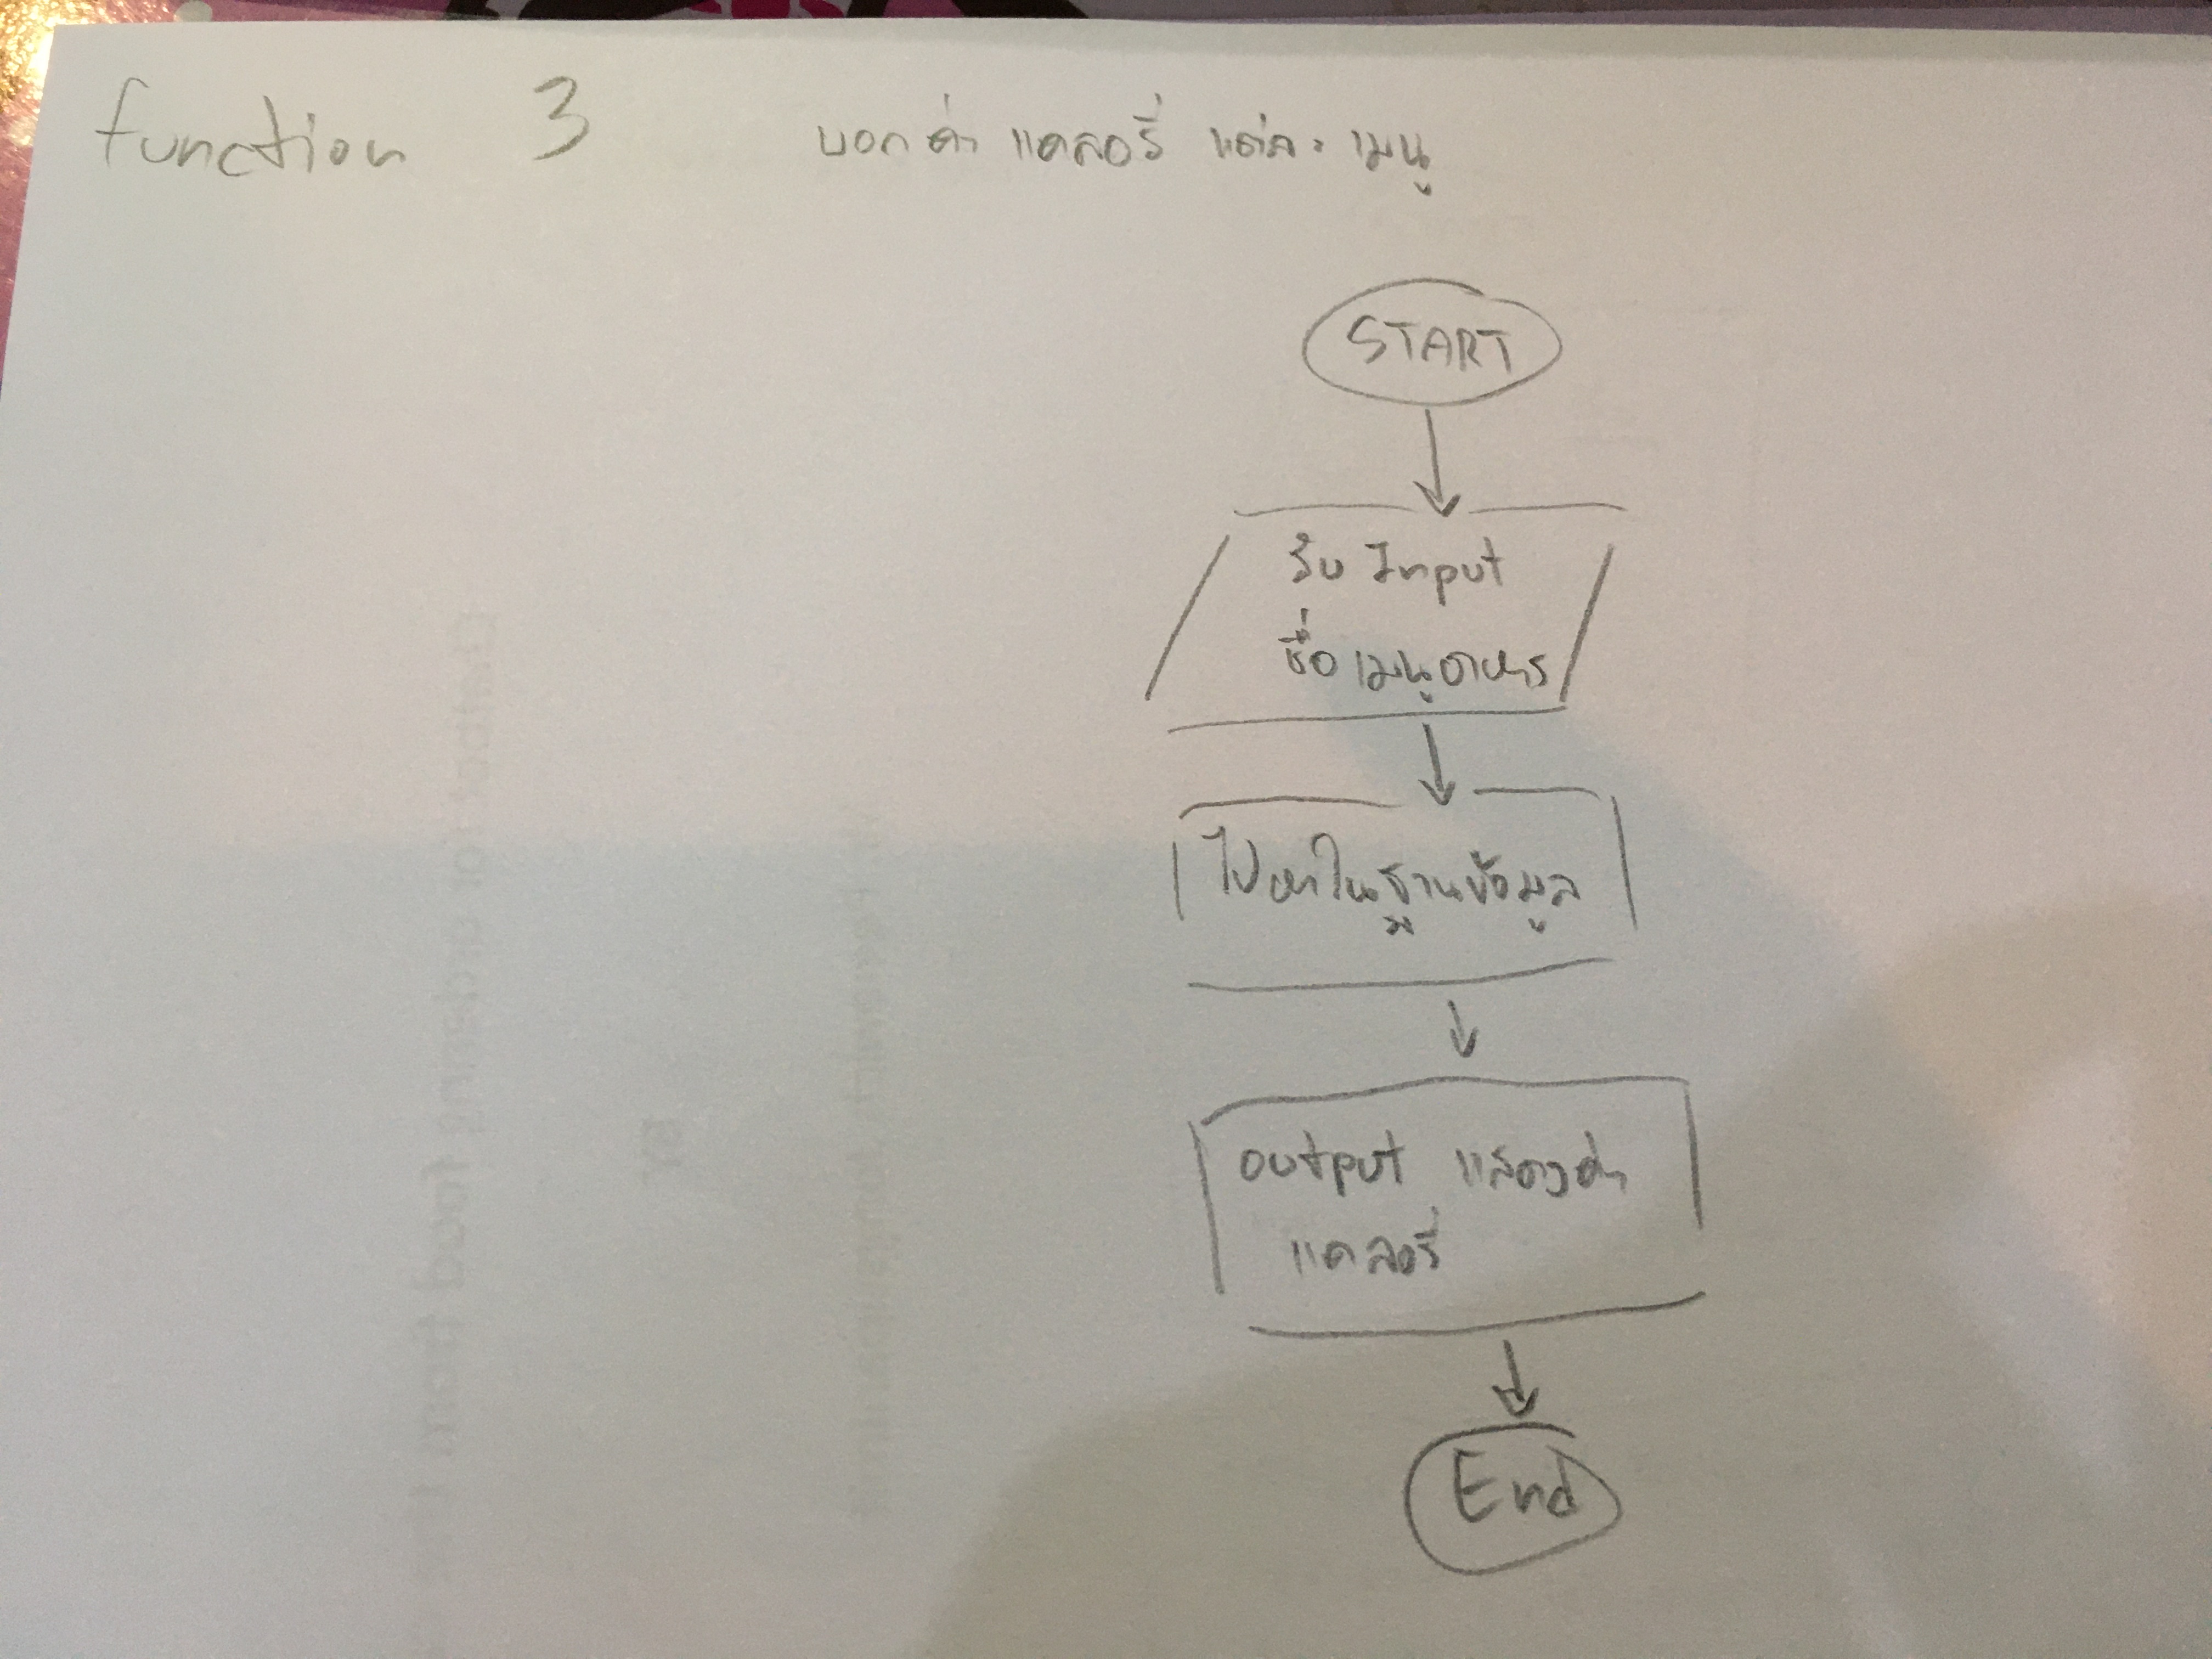 function 3 บอกค่า แคลอรี่ แต่ละ เมนู
START
รับ Input
ชื่อเมนูอาหาร
ไปหาในฐานข้อมูล
output แสดงค่า
แคลอรี่
End